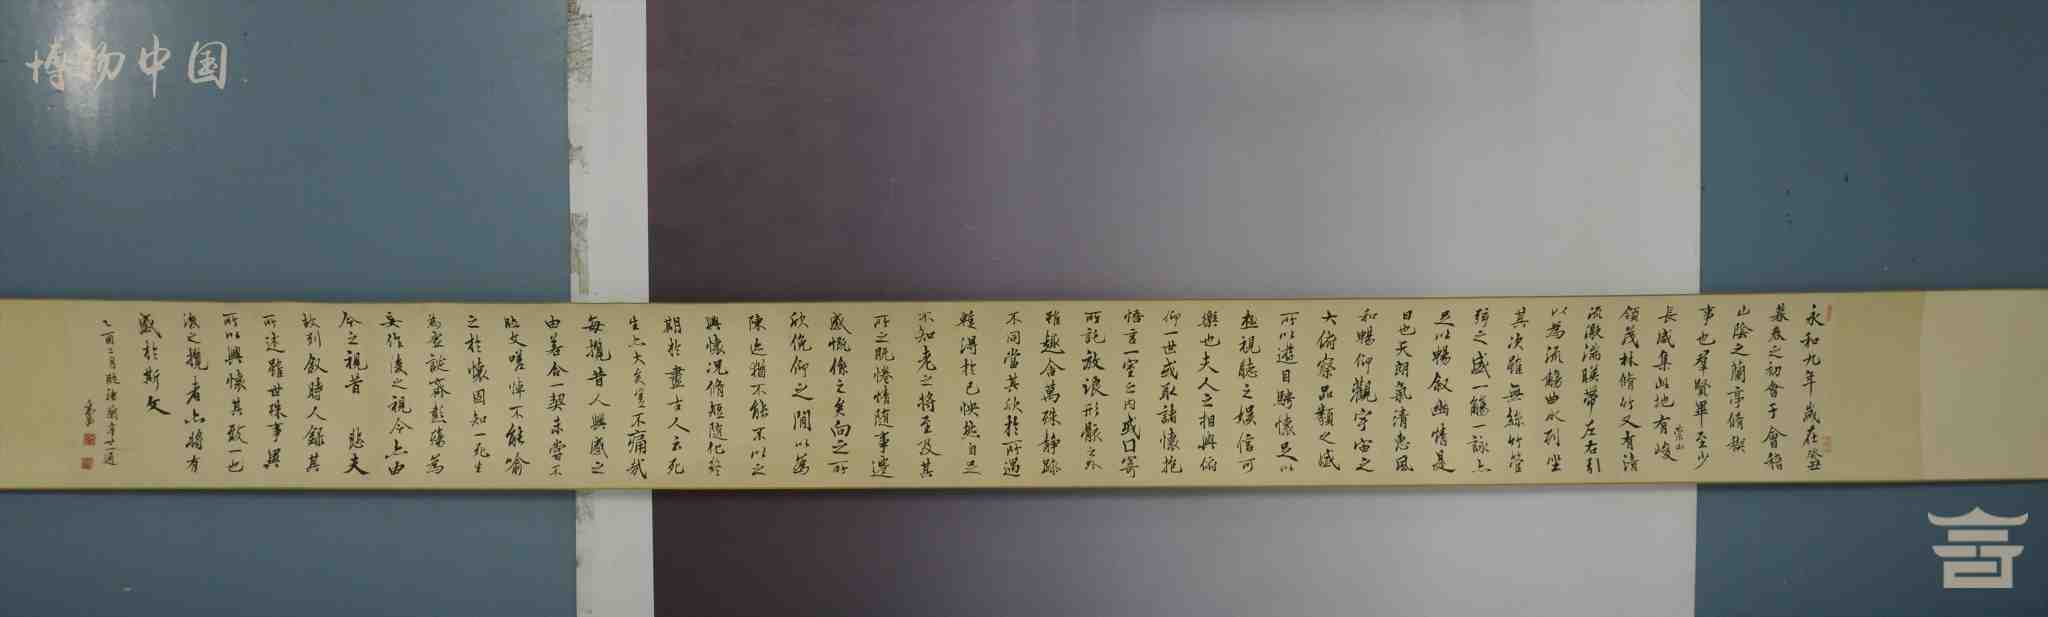 博物中国
永和九年歲在癸丑
暮春之初會于會稽
山陰之蘭亭脩禊
事也羣賢畢至少
長咸集此地有峻
崇山
領茂林脩竹又有清
流激湍暎帶左右引
以為流觴曲水列坐
其次雖無絲竹管
弦之盛一觴一詠亦
足以暢敘幽情是
日也天朗氣清惠風
和暢仰觀宇宙之
大俯察品類之盛
所以遊目騁懷足以
極視聽之娛信可
樂也夫人之相與俯
仰一世或取諸懷抱
悟言一室之內或曰寄
所託放浪形骸之外
雖趣舍萬殊靜躁
不同當其欣於所遇
暫得於己怏然自足
不知老之將至及其
所之既惓情隨事遷
感慨係之矣向之所
欣俛仰之閒以為
陳迹猶不能不以之
興懷況脩短隨化終
期於盡古人云死
生亦大矣豈不痛哉
每攬昔人興感之
由若合一契未嘗不
臨文嗟悼不能喻
之於懷固知一死生
為虛誕齊彭殤為
妄作後之視今亦由
今之視昔 悲夫
故列敘時人錄其
所述雖世殊事異
所以興懷其致一也
後之攬者亦將有
感於斯文
乙酉二月臨禊蘭亭廿一通